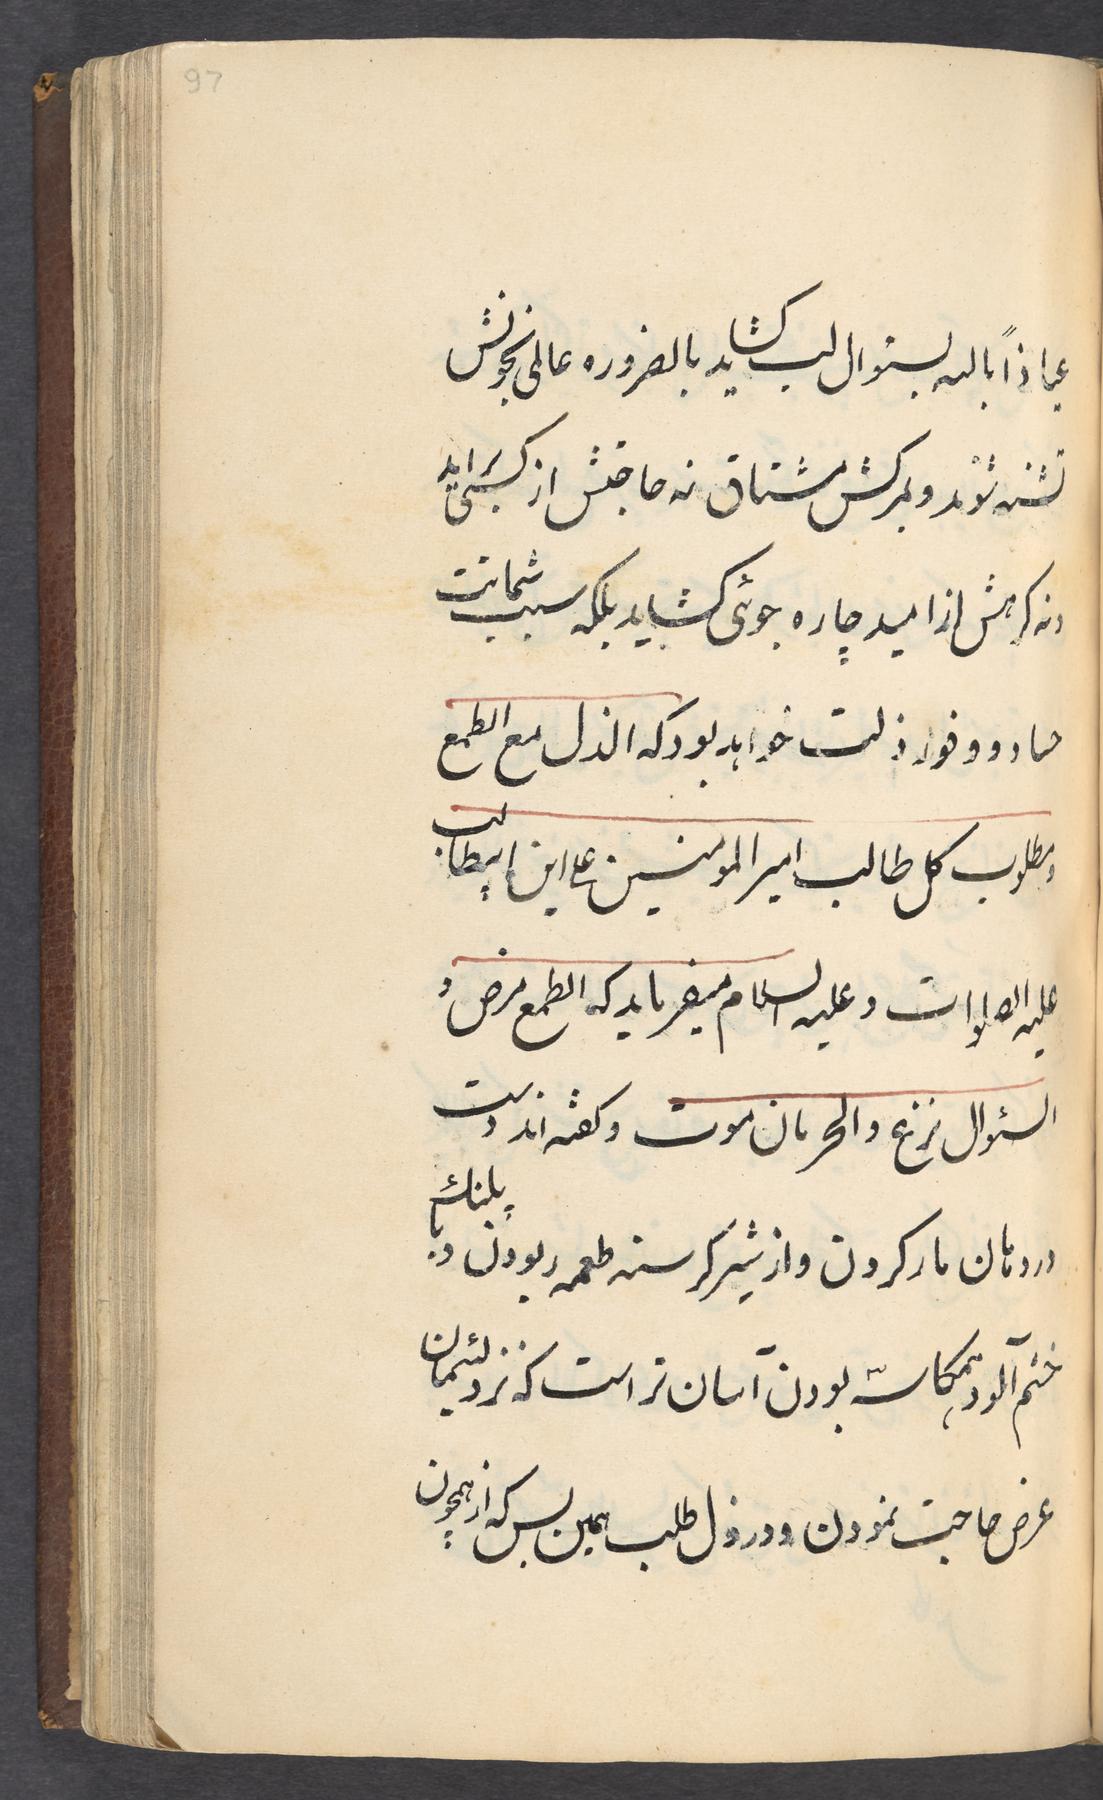 97
عیاذاً بالله بسئوال لب کشاید بالضروره عالمی بخونش
تشنه شوند و بمرکش مشتاق نه حاجتش از کسی براید
و نه کرهش از امید چاره جوئی کشاید بلکه سبب شماتت
حساد و وفور ذلت خواهد بود که الذل مع الطمع
و مطلوب کل طالب امیر المومنین علی ابن ابیطالب
علیه الصلوات و علیه السلام میفرماید که الطمع مرض و
السئوال نزع و الحرمان موت و کفته اند دست
در دهان مار کردن و از شیر کرسنه طعمه ربودن و با پلنک
خشم آلود همکاسه بودن آسان تر است که نزد لئیمان
عرض حاجت نمودن و در ذل طلب همین بس که از همچون